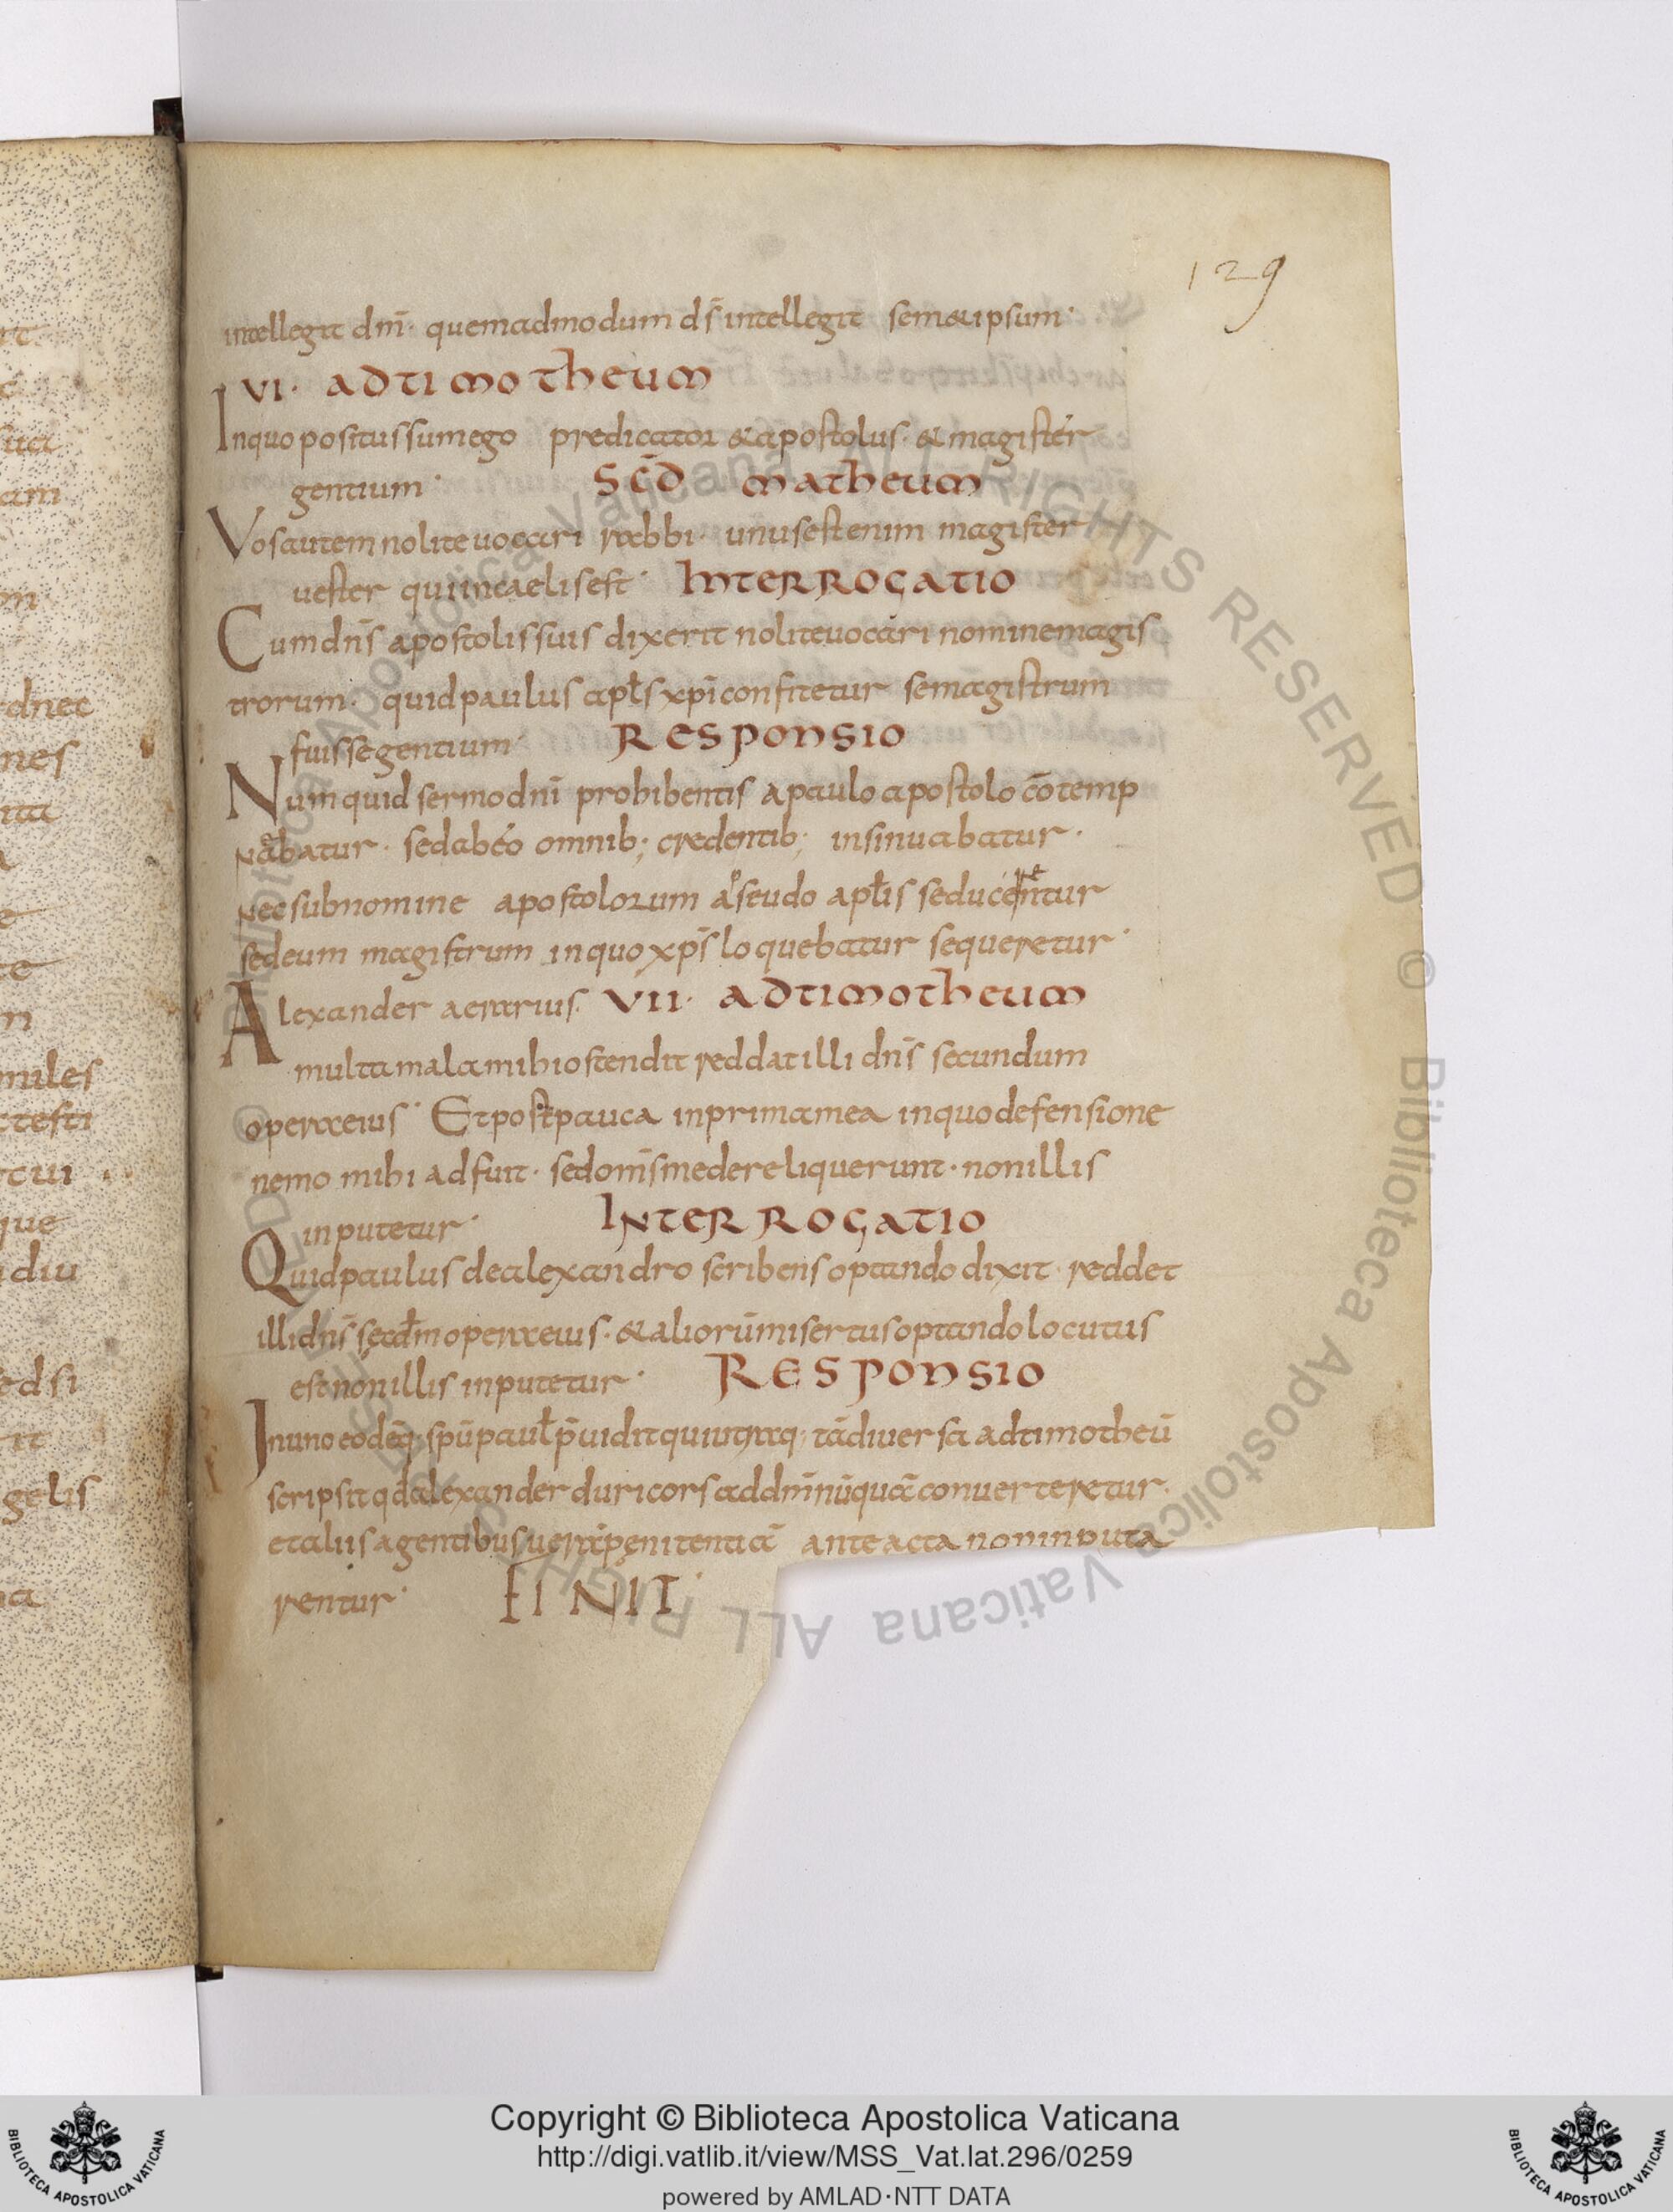 129
intellegit dm̄· quemadmodum ds̄ intellegit sem&ipsum·
VI· ADTIMOTHEUM
Inquo positus sum ego predicator &apostolus· &magister
gentium· SCD̄ MATHEUM
Vos autem nolite uocari rabbi· unus est enim magister
uester qui in caelis est· INTERROGATIO
Cum dn̄s apostolis suis dixerit nolite uocari nomine magis
trorum· quid paulus apl̄s xp̄i confitetur se magistrum
fuisse gentium· RESPONSIO
Numquid sermo dn̄i prohibentis a paulo apostolo cōtemp
nabatur· sed ab eo omnib; credentib; insinuabatur·
Nec sub nomine apostolorum a pseudo apl̄is seducerentur
sed eum magistrum in quo xp̄s loquebatur sequeretur·
Alexander aerarius· VII· ADTIMOTHEUM
multa mala mihi ostendit reddat illi dn̄s secundum
opera eius· Et post pauca in prima mea inquo defensione
nemo mihi adfuit· sed om̄s me dereliquerunt· non illis
inputetur· INTERROGATIO
Quid paulus de alexandro scribens optando dixit· reddet
illi dn̄s secd̄m opera eius· & aliorū misertus optando locutus
est non illis inputetur· RESPONSIO
In uno eodēq; sp̄u paul̄ p̄uidit qui utraq; tā diuersa ad timotheū
scripsit qd̄ alexander duricors ad dm̄ nūquā conuerteretur·
et aliis agentibus uerā penitentiā ante acta non inputa
rentur· FINIT·
Copyright © Biblioteca Apostolica Vaticana
http://digi.vatlib.it/view/MSS_Vat.lat.296/0259
powered by AMLAD·NTT DATA
BIBLIOTECA APOSTOLICA VATICANA
BIBLIOTECA APOSTOLICA VATICANA